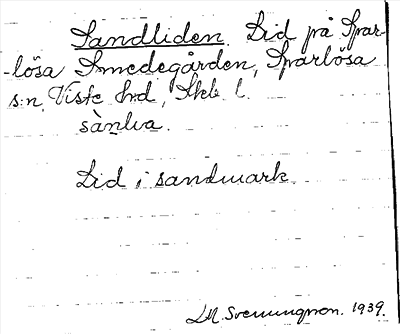 Sandliden. Lid på Spar-
-lösa Smedegården, Sparlösa
s:n, Viste hd, Skb l.
sànlia.
Lid i sandmark.
M. Svenungson. 1939.